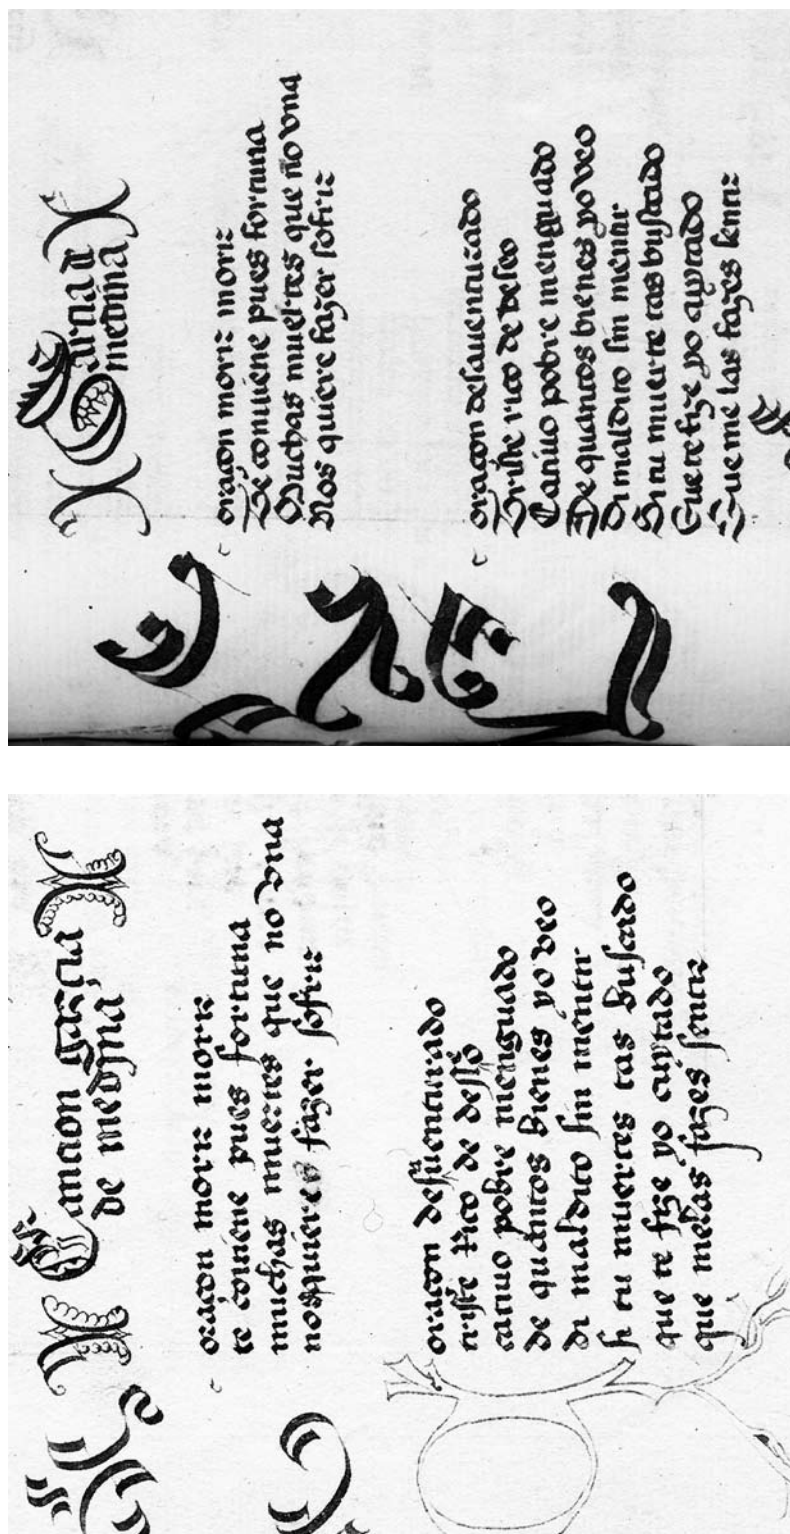 Garçia d
medina
oraçon morir morir
Te conviene pues fortuna
Muchas muertes que no vna
Nos quiere fazer sofrir
oraçon desauenturado
Triste rico de deseo
Catiuo pobre menguado
De quantos bienes yo veo
Di maldito sin mentir
Si tu muerte tas buscado
Que te fize yo cuytado
Que me las fazes sentir
Cancion garçia
de medina
oraçon morir morir
te conuiene pues fortuna
muchas muertes que no vna
nos quieres fazer sofrir
oraçon desuenturado
triste Rico de desseo
catiuo pobre menguado
de quantos bienes yo veo
di maldito sin mentir
si tu muertes tas buscado
que te fize yo cuytado
que melas fazes sentir